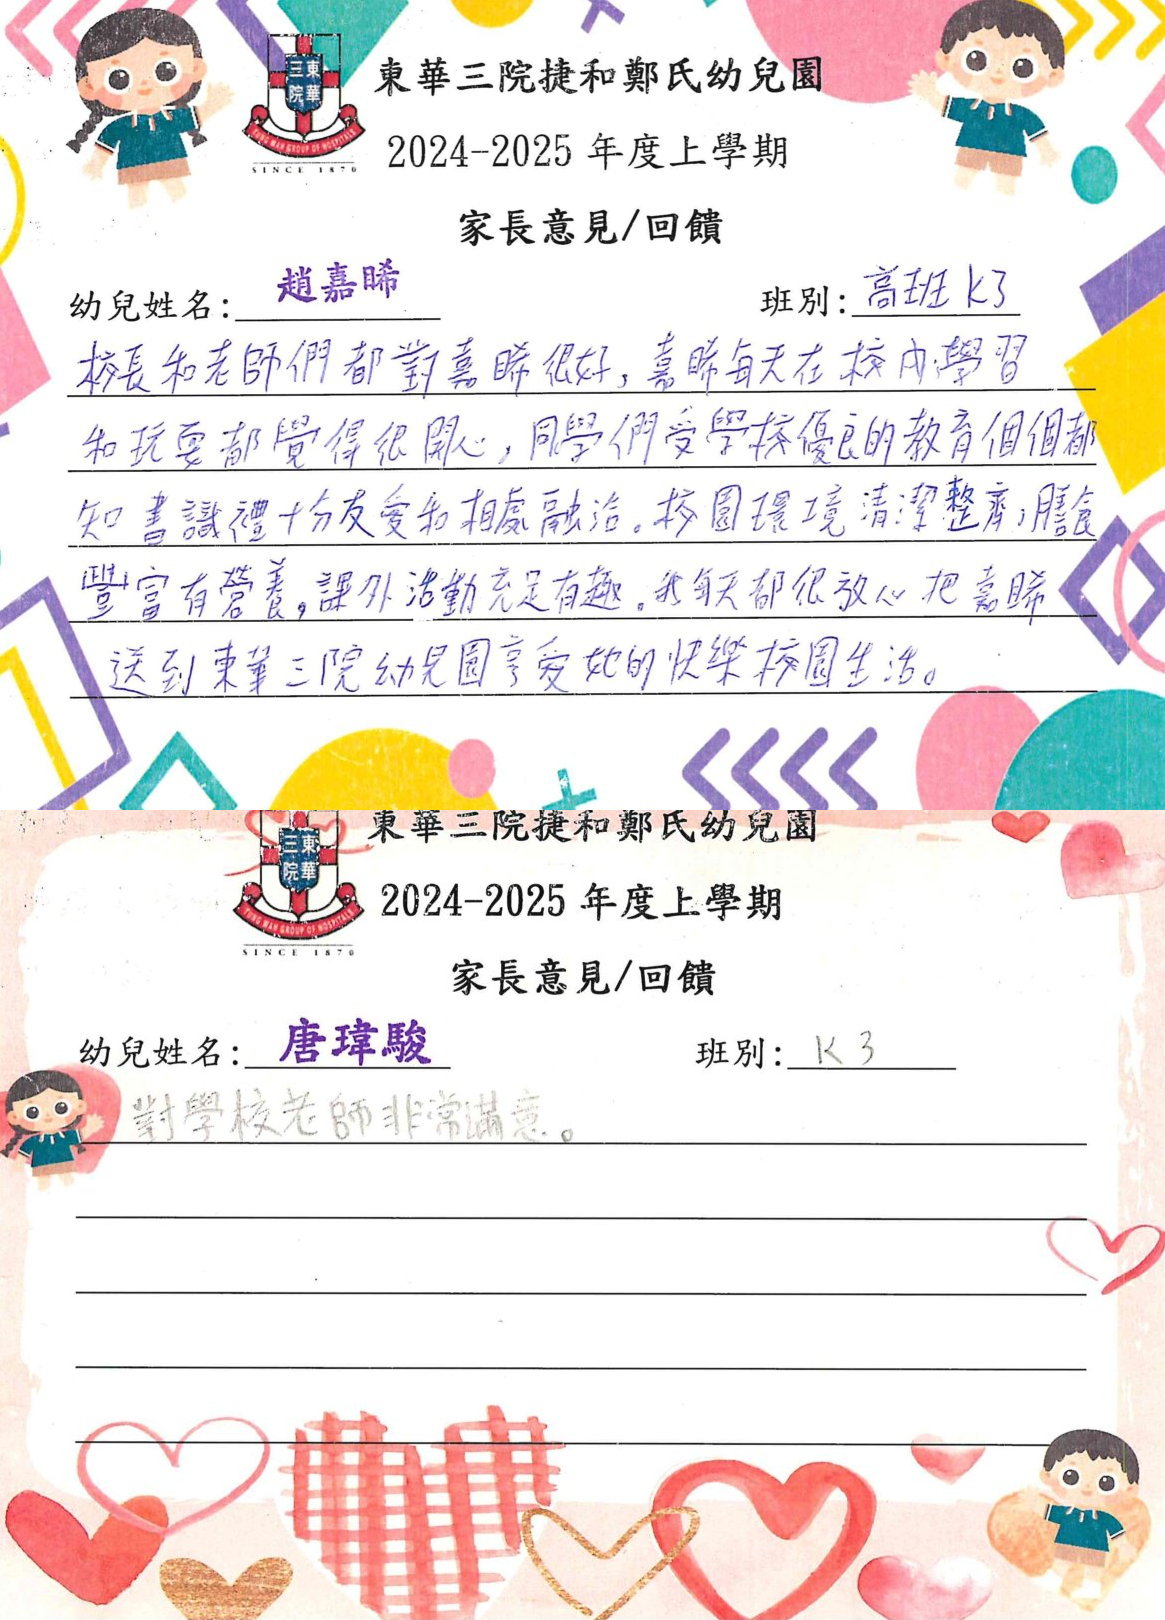 東華三院
TUNG WAH GROUP OF HOSPITALS
SINCE 1870
東華三院捷和鄭氏幼兒園
2024-2025 年度上學期
家長意見/回饋
幼兒姓名:趙嘉晞 班別:高班 K3
校長和老師們都對嘉晞很好,嘉晞每天在校內學習
和玩耍都覺得很開心,同學們受學校優良的教育個個都
知書識禮十分友愛和相處融洽。校園環境清潔整齊,膳食
豐富有營養,課外活動充足有趣。我每天都很放心把嘉晞
送到東華三院幼兒園享受她的快樂校園生活。
東華三院
TUNG WAH GROUP OF HOSPITALS
SINCE 1870
東華三院捷和鄭氏幼兒園
2024-2025 年度上學期
家長意見/回饋
幼兒姓名:唐瑋駿 班別:K3
對學校老師非常滿意。